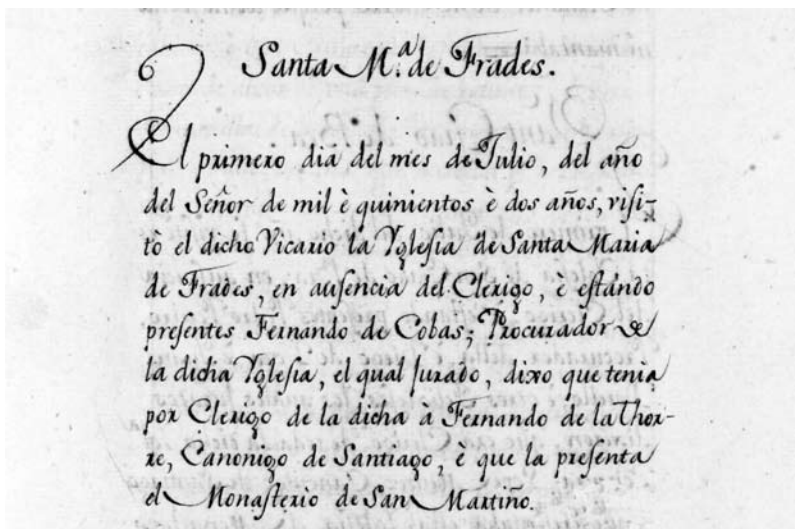 Santa M.ª de Frades.
El primero dia del mes de Julio, del año
del Señor de mil è quinientos è dos años, visi-
tò el dicho Vicario la Yglesia de Santa Maria
de Frades, en ausencia del Clerigo, è estando
presentes Fernando de Cobas; Procurador de
la dicha Yglesia, el qual jurado, dixo que tenia
por Clerigo de la dicha a Fernando de la Thor-
re, Canonigo de Santiago, è que la presenta
el Monasterio de San Martiño.